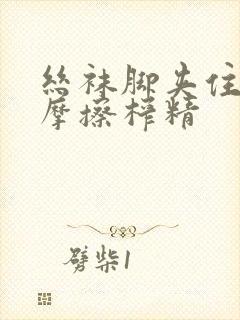 丝袜脚夹住
摩擦榨精
劈柴1